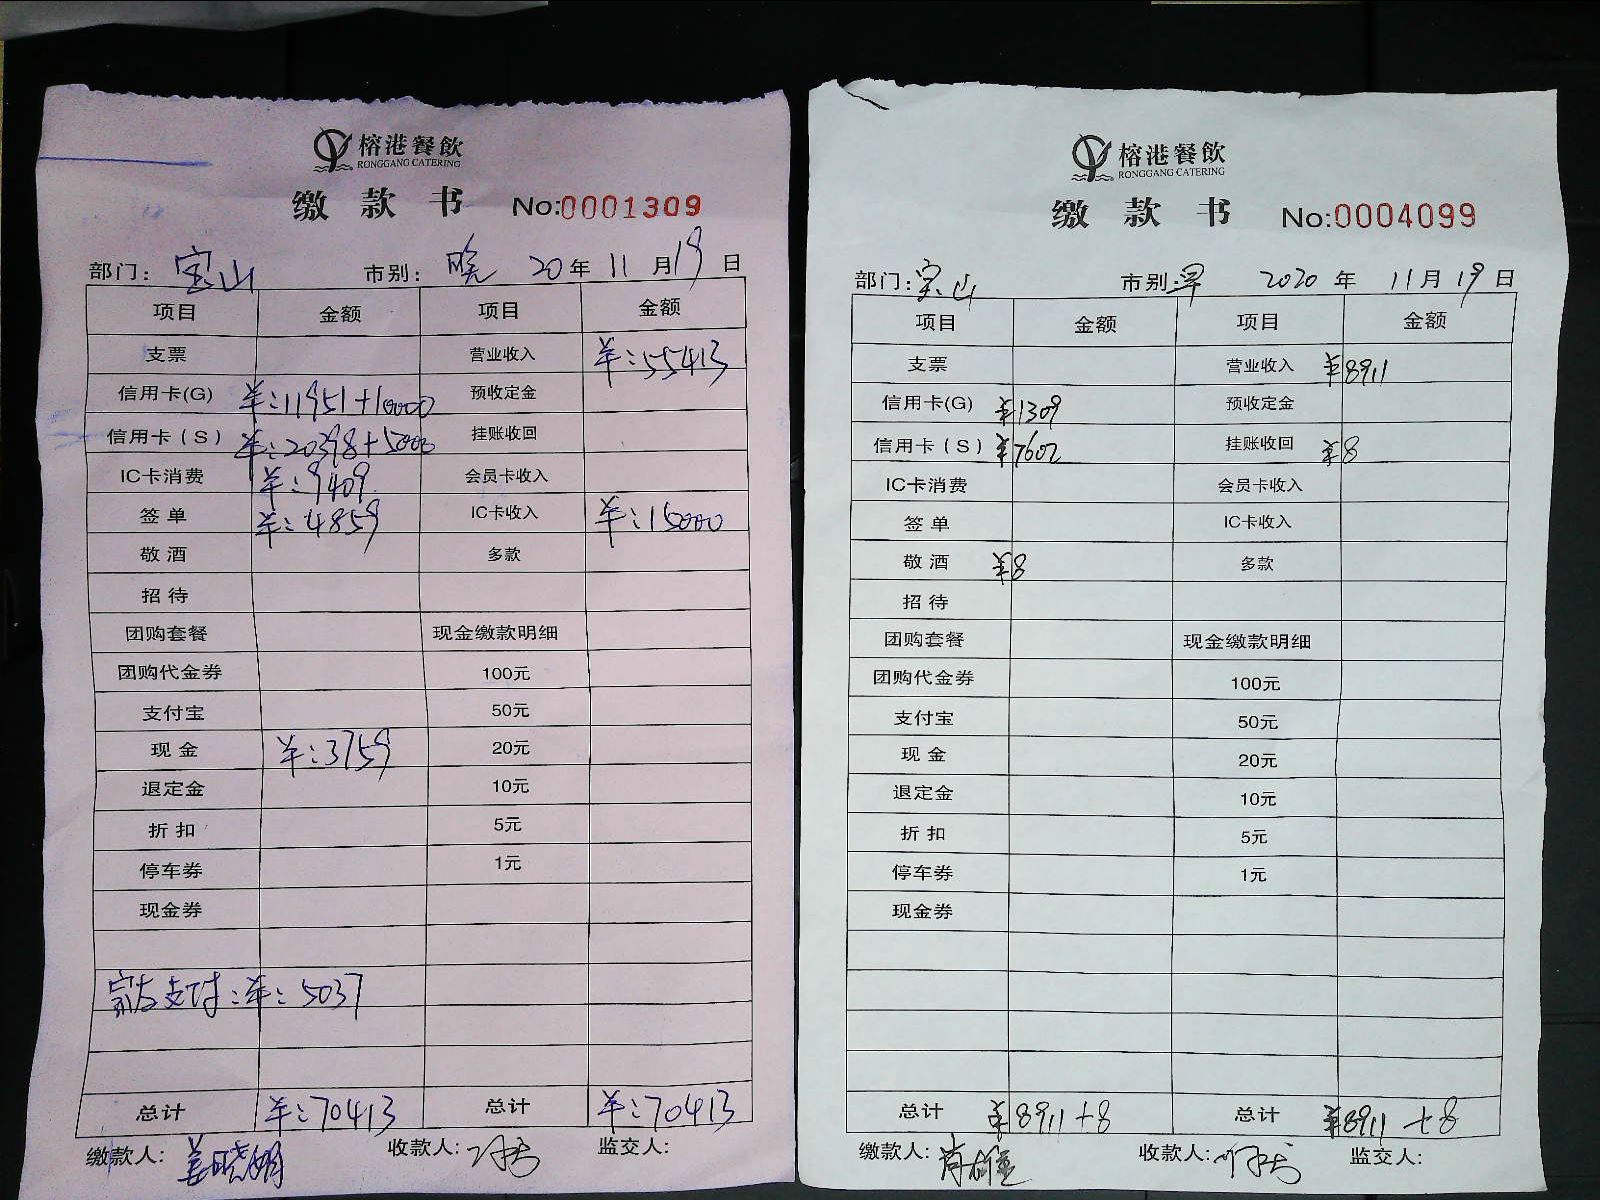 榕港餐飲
RONGGANG CATERING
缴款书 No:0001309
部门：宝山 市别：晚 20年11月19日
项目 金额 项目 金额
支票 营业收入 ¥:55413
信用卡(G) ¥:11951+10000 预收定金
信用卡（S） ¥:20398+5000 挂账收回
IC卡消费 ¥:9409 会员卡收入
签单 ¥:4859 IC卡收入 ¥:15000
敬酒 多款
招待
团购套餐 现金缴款明细
团购代金券 100元
支付宝 50元
现金 ¥:3759 20元
退定金 10元
折扣 5元
停车券 1元
现金券
支付:¥:5037
总计 ¥:70413 总计 ¥:70413
缴款人：姜晓娟 收款人: 监交人:
榕港餐飲
RONGGANG CATERING
缴款书 No:0004099
部门:宝山 市别:早 2020年11月19日
项目 金额 项目 金额
支票 营业收入 ¥8911
信用卡(G) ¥1309 预收定金
信用卡（S） ¥7602 挂账收回 ¥8
IC卡消费 会员卡收入
签单 IC卡收入
敬酒 ¥8 多款
招待
团购套餐 现金缴款明细
团购代金券 100元
支付宝 50元
现金 20元
退定金 10元
折扣 5元
停车券 1元
现金券
总计 ¥8911+8 总计 ¥8911+8
缴款人: 收款人: 监交人: